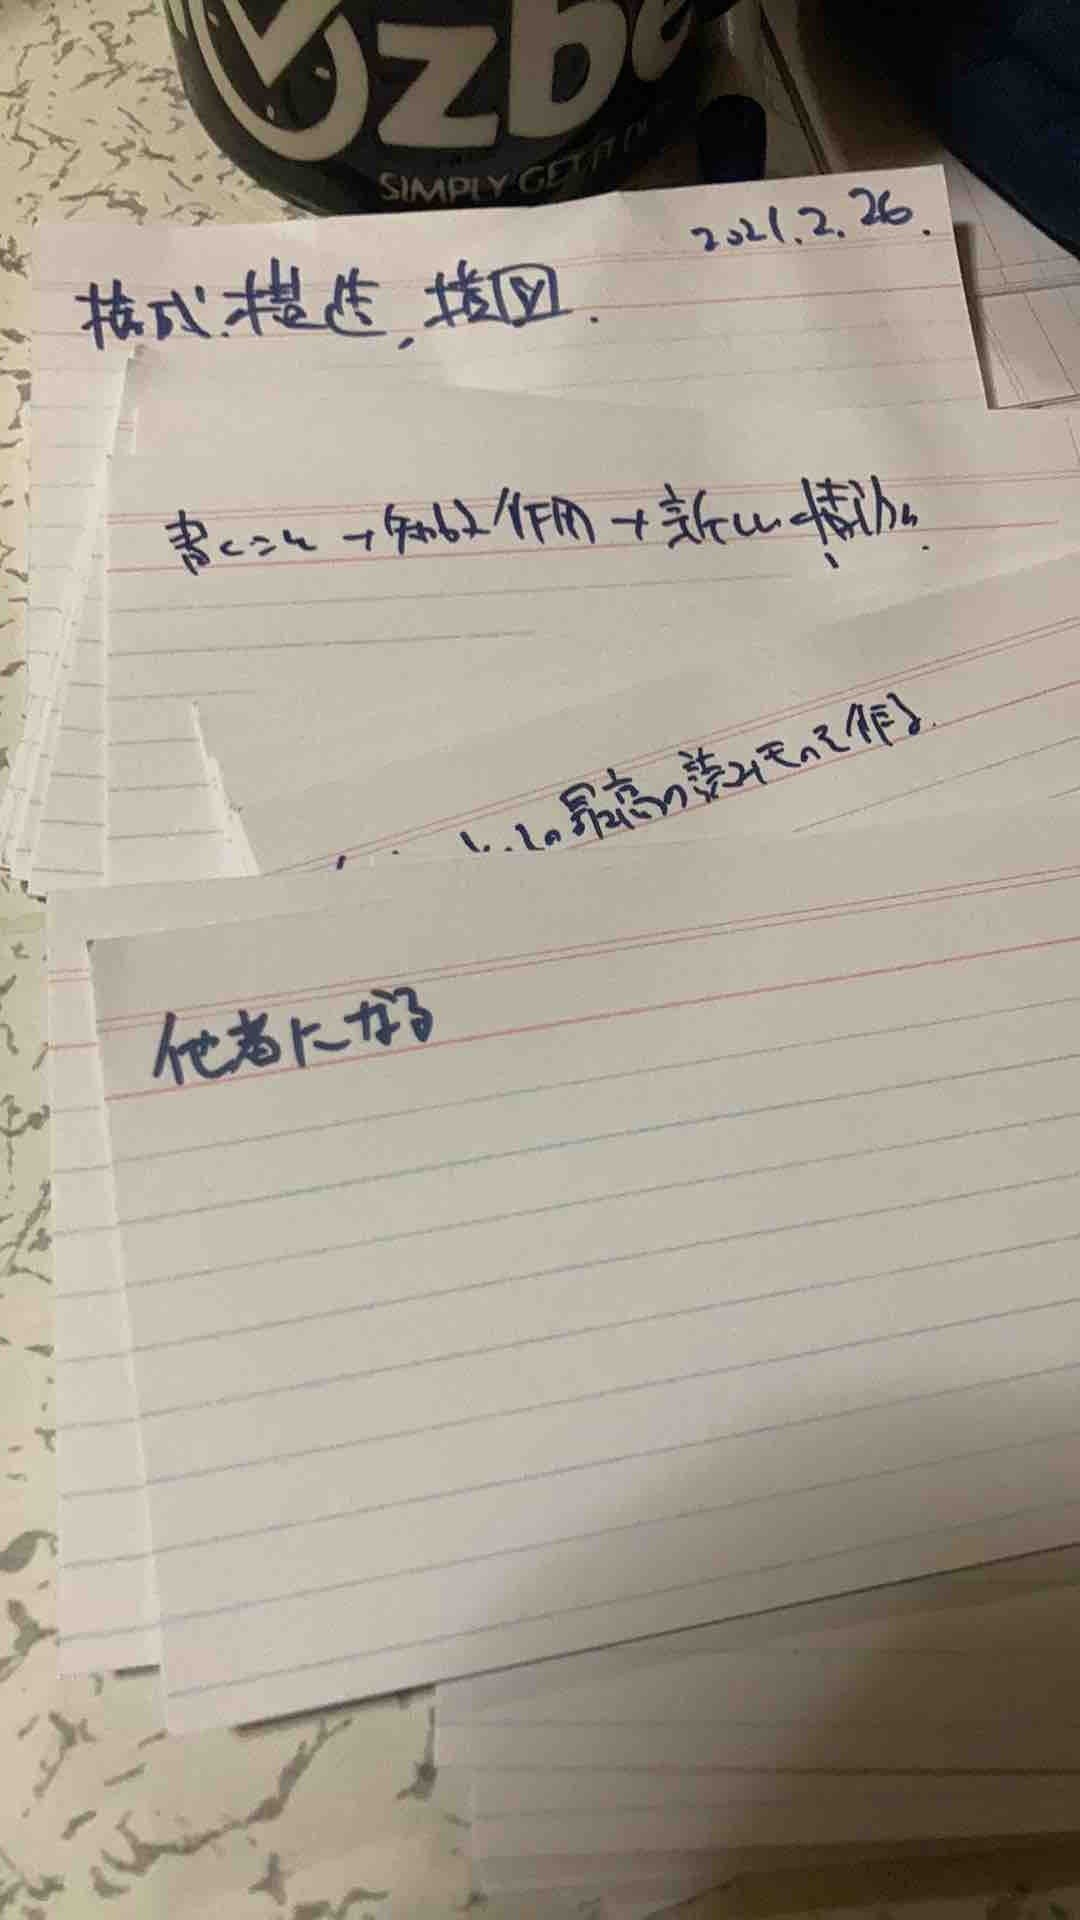 zbe
SIMPLY GET IT
2021.2.26.
構成.構造,構図.
書くこと→知的作用→新しい構造へ.
の最高の読みモノを作る.
他者になる